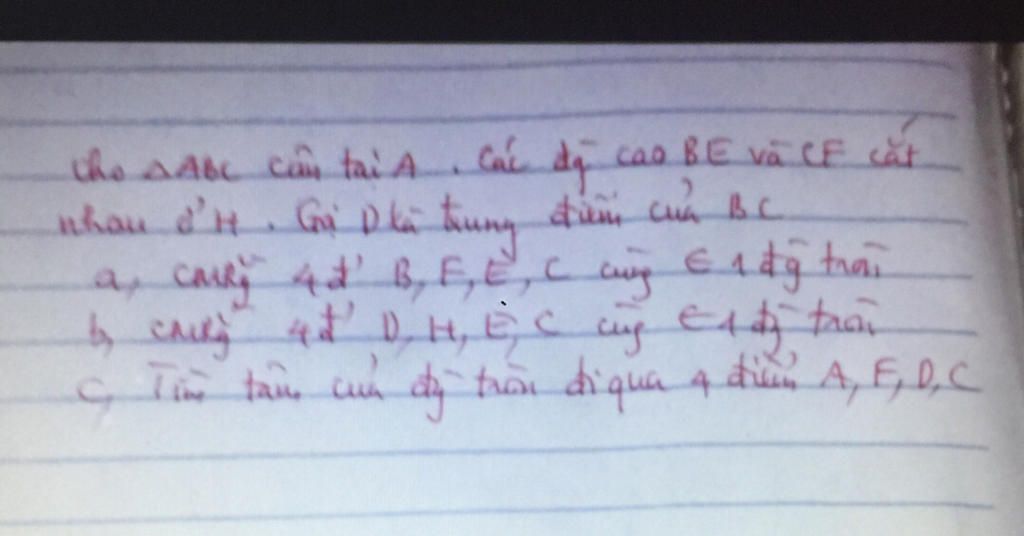 Cho △ABC cân tại A. Các đg cao BE và CF cắt
nhau ở H. Gọi D là trung điểm của BC
a, CMRg 4 đ' B, F, E, C cùng ∈ 1 đg tròn
b, CMRg 4 đ' D, H, E, C cùng ∈ 1 đg tròn
C, Tìm tâm của đg tròn đi qua 4 điểm A, F, D, C